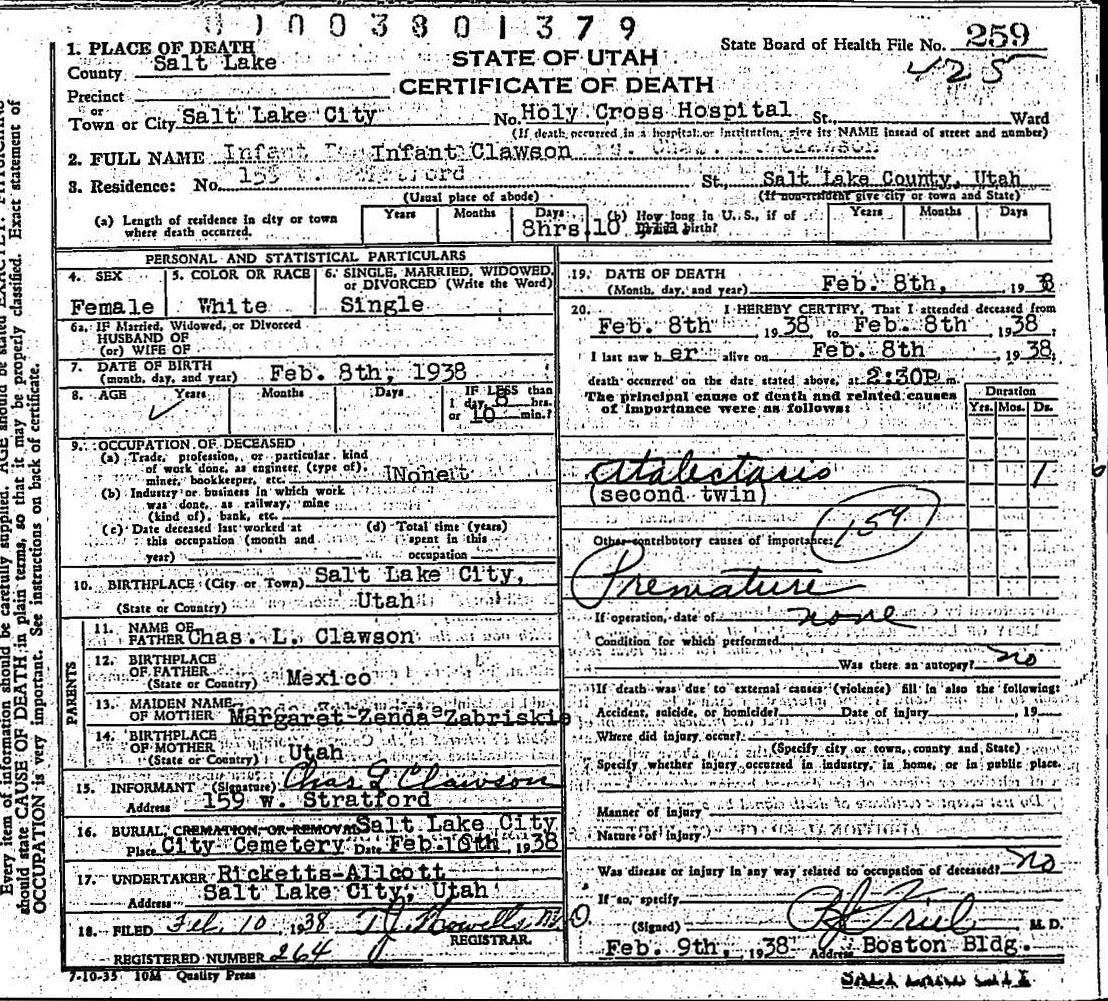 0 1 0 0 3 8 0 1 3 7 9
State Board of Health File No. 259
425
STATE OF UTAH
CERTIFICATE OF DEATH
1. PLACE OF DEATH
County Salt Lake
Precinct
or
Town or City Salt Lake City No. Holy Cross Hospital St., Ward
(If death occurred in a hospital or institution, give its NAME instead of street and number)
2. FULL NAME Infant Infant Clawson Clawson
3. Residence: No. 159 W. Stratford St., Salt Lake County, Utah
(Usual place of abode) (If non-resident give city or town and State)
(a) Length of residence in city or town where death occurred. Years Months Days 8hrs.10 min. (b) How long in U. S., if of birth? Years Months Days
PERSONAL AND STATISTICAL PARTICULARS
4. SEX Female
5. COLOR OR RACE White
6. SINGLE, MARRIED, WIDOWED, or DIVORCED (Write the Word) Single
6a. IF Married, Widowed, or Divorced
HUSBAND OF
(or) WIFE OF
7. DATE OF BIRTH
(month, day, and year) Feb. 8th, 1938
8. AGE Years Months Days IF LESS than
1 day 8 hrs.
or 10 min.?
9. OCCUPATION OF DECEASED
(a) Trade, profession, or particular kind
of work done, as engineer (type of),
miner, bookkeeper, etc. None
(b) Industry or business in which work
was done, as railway, mine
(kind of), bank, etc.
(c) Date deceased last worked at
this occupation (month and
year)
(d) Total time (years)
spent in this
occupation
10. BIRTHPLACE (City or Town) Salt Lake City,
(State or Country) Utah
PARENTS
11. NAME OF
FATHER Chas. L. Clawson
12. BIRTHPLACE
OF FATHER
(State or Country) Mexico
13. MAIDEN NAME
OF MOTHER Margaret Zenda Zabriskie
14. BIRTHPLACE
OF MOTHER
(State or Country) Utah
15. INFORMANT (Signature) Chas L Clawson
Address 159 W. Stratford
16. BURIAL, CREMATION, OR REMOVAL Salt Lake City
Place City Cemetery Date Feb. 10th, 1938
17. UNDERTAKER Ricketts-Allcott
Address Salt Lake City, Utah
18. FILED Feb. 10 1938 T J Howells M D
REGISTRAR.
REGISTERED NUMBER 264
7-10-35 10M Quality Press
19. DATE OF DEATH
(Month, day, and year) Feb. 8th, 1938
20. I HEREBY CERTIFY, That I attended deceased from
Feb. 8th 1938 to Feb. 8th 1938.
I last saw her alive on Feb. 8th 1938;
death occurred on the date stated above, at 2:30P m.
The principal cause of death and related causes
of importance were as follows:
Duration
Yrs. Mos. Ds.
Atalectasis 1
(second twin)
159
Other contributory causes of importance:
Premature
If operation, date of none
Condition for which performed
Was there an autopsy? no
If death was due to external causes (violence) fill in also the following:
Accident, suicide, or homicide? Date of injury , 19
Where did injury occur?
(Specify city or town, county and State)
Specify whether injury occurred in industry, in home, or in public place.
Manner of injury
Nature of injury
Was disease or injury in any way related to occupation of deceased? no
If so, specify
(Signed) Friel M. D.
Feb. 9th, 1938 Address Boston Bldg.
SALT LAKE CITY
Every item of information should be carefully supplied. AGE should be stated EXACTLY.
should state CAUSE OF DEATH in plain terms, so that it may be properly classified. Exact statement of
OCCUPATION is very important. See instructions on back of certificate.